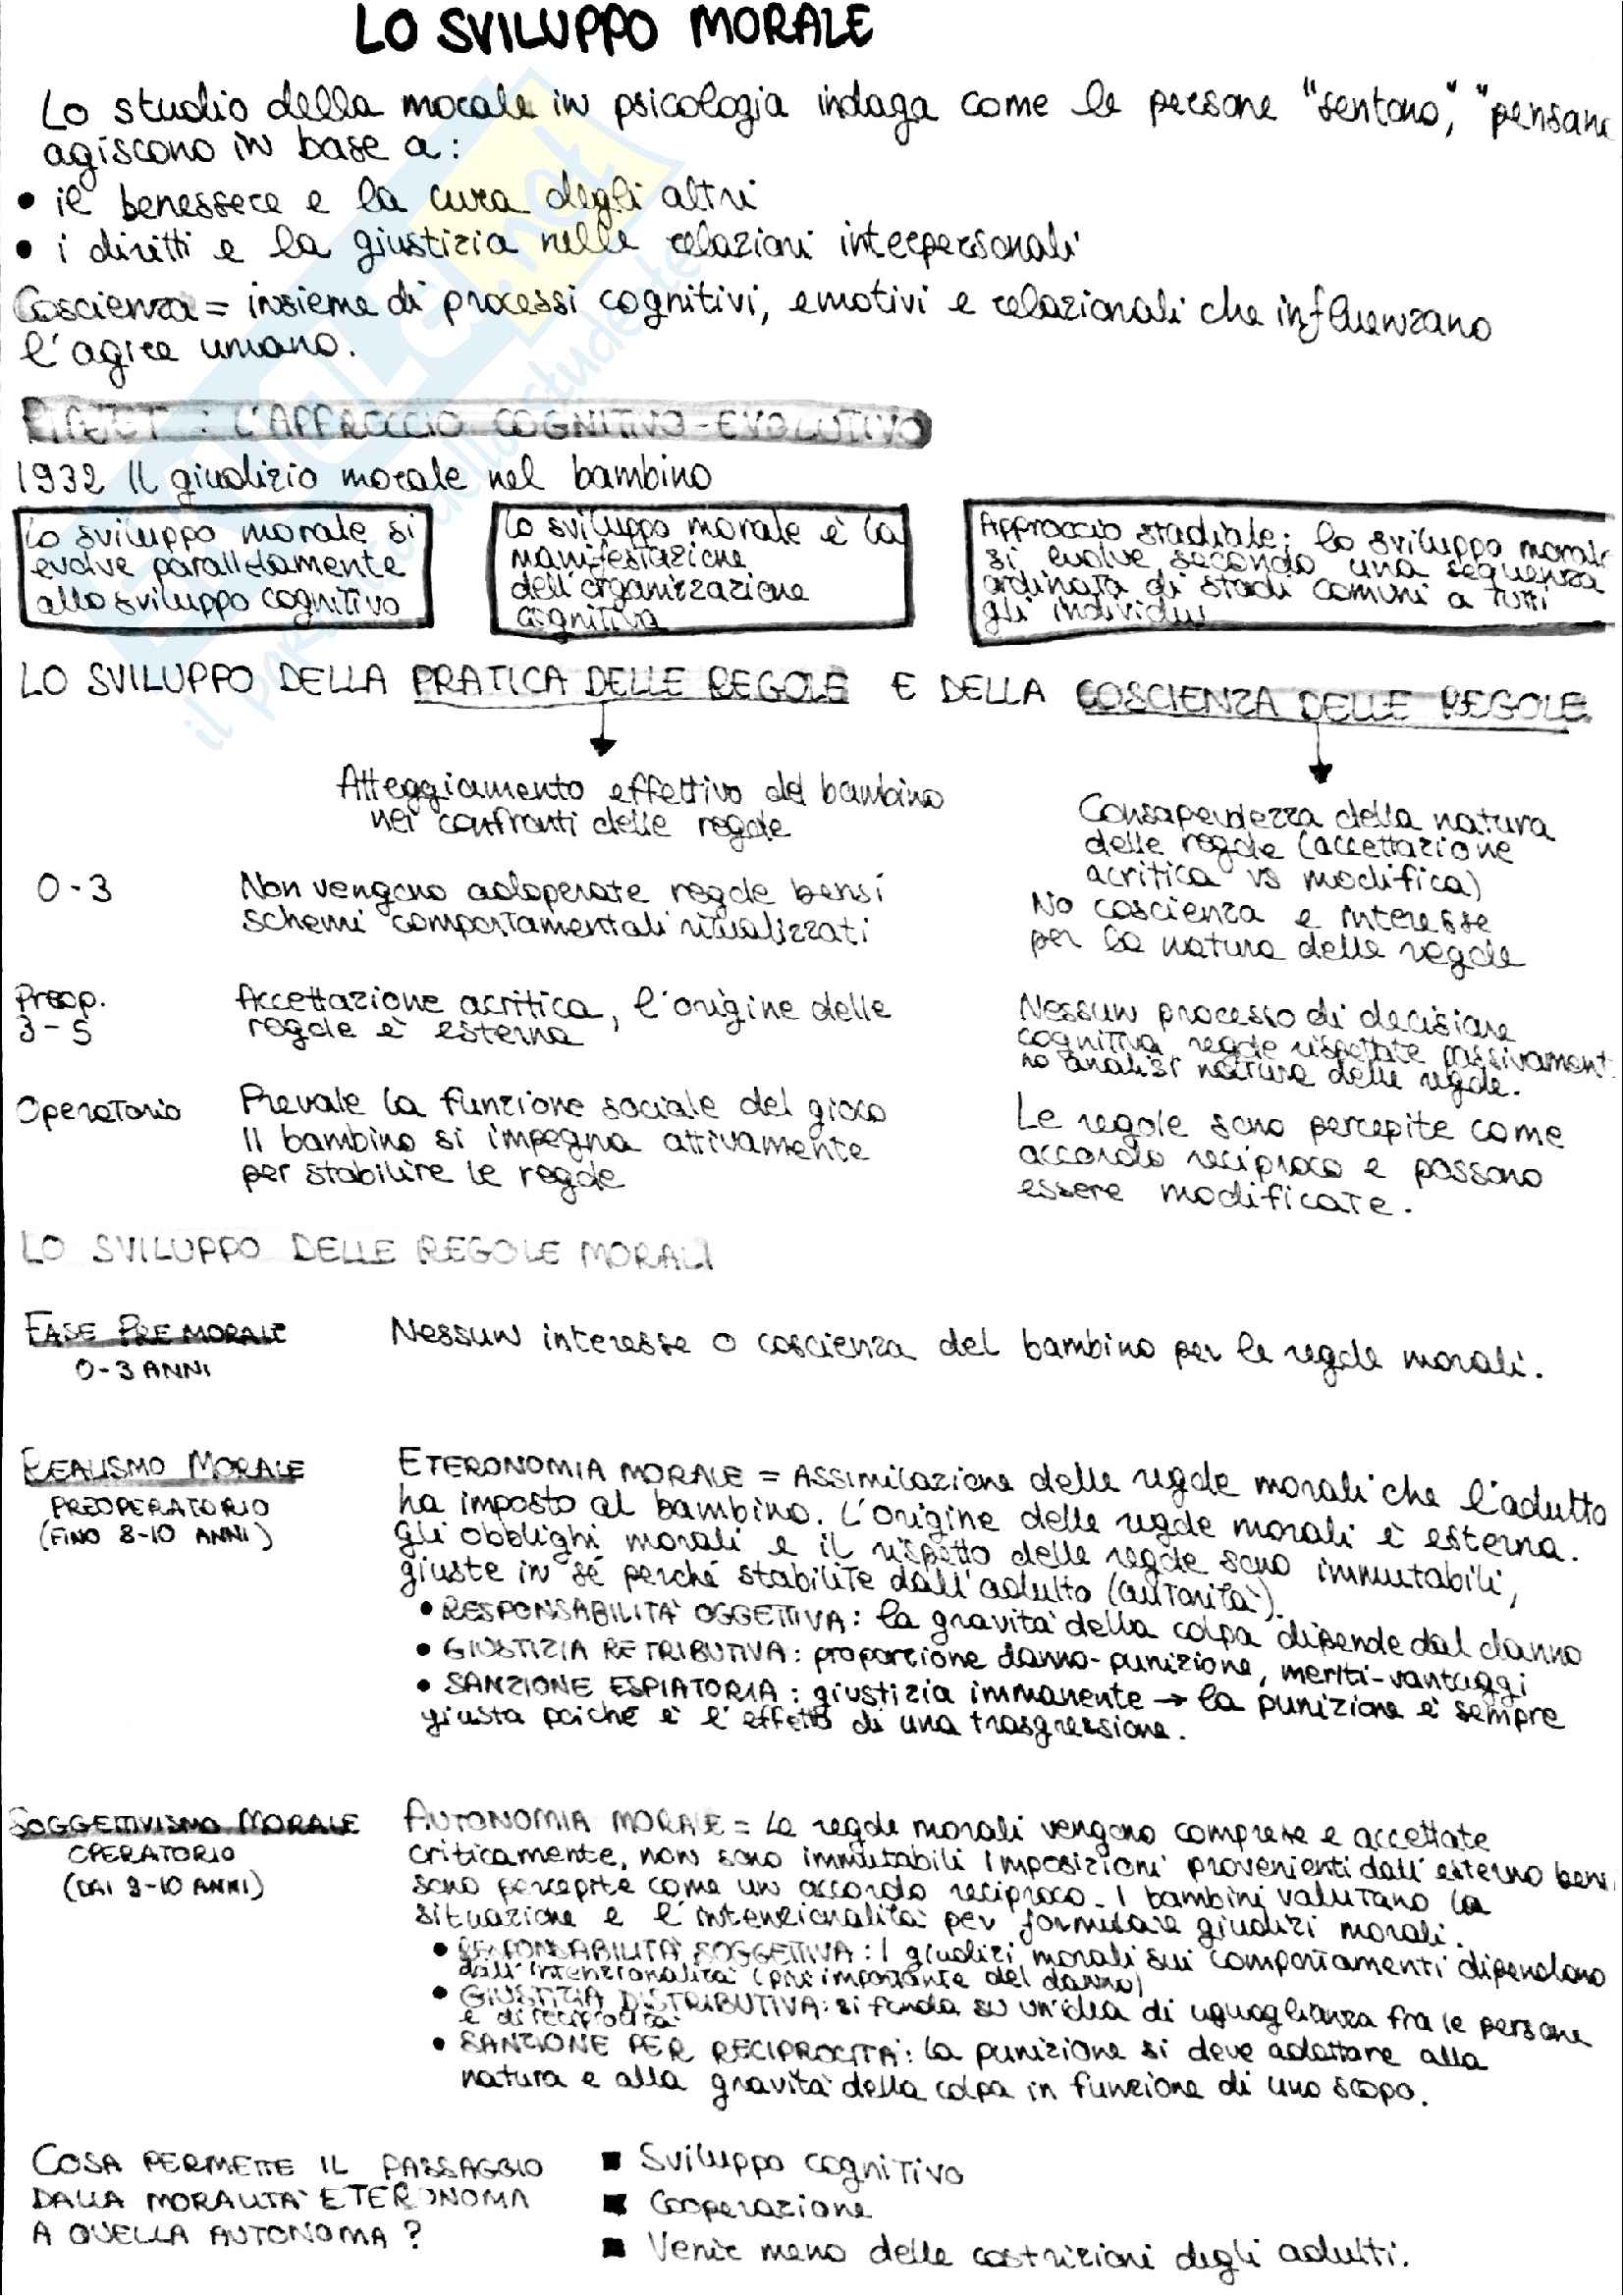 LO SVILUPPO MORALE
Lo studio della morale in psicologia indaga come le persone "sentono", "pensan
agiscono in base a:
• il benessere e la cura degli altri
• i diritti e la giustizia nelle relazioni interpersonali
Coscienza = insieme di processi cognitivi, emotivi e relazionali che influenzano
l'agire umano.
PIAJET : L'APPROCCIO COGNITIVO-EVOLUTIVO
1932 Il giudizio morale nel bambino
Lo sviluppo morale si
evolve parallelamente
allo sviluppo cognitivo
Lo sviluppo morale è la
manifestazione
dell'organizzazione
cognitiva
Approccio stadiale: lo sviluppo morale
si evolve secondo una sequenza
ordinata di stadi comuni a tutti
gli individui
LO SVILUPPO DELLA PRATICA DELLE REGOLE E DELLA COSCIENZA DELLE REGOLE
Atteggiamento effettivo del bambino
nei confronti delle regole
Consapevolezza della natura
delle regole (accettazione
acritica vs modifica)
0-3
Non vengono adoperate regole bensì
schemi comportamentali ritualizzati
No coscienza e interesse
per la natura delle regole
Preop.
3-5
Accettazione acritica, l'origine delle
regole è esterna
Nessun processo di decisione
cognitiva regole rispettate passivament
no analisi natura delle regole.
Operatorio
Prevale la funzione sociale del gioco
Il bambino si impegna attivamente
per stabilire le regole
Le regole sono percepite come
accordo reciproco e possono
essere modificate.
LO SVILUPPO DELLE REGOLE MORALI
FASE PREMORALE
0-3 ANNI
Nessun interesse o coscienza del bambino per le regole morali.
REALISMO MORALE
PREOPERATORIO
(FINO 8-10 ANNI)
ETERONOMIA MORALE = Assimilazione delle regole morali che l'adulto
ha imposto al bambino. L'origine delle regole morali è esterna.
Gli obblighi morali e il rispetto delle regole sono immutabili,
giuste in sé perché stabilite dall'adulto (autorità).
• RESPONSABILITA' OGGETTIVA: la gravità della colpa dipende dal danno
• GIUSTIZIA RETRIBUTIVA: proporzione danno-punizione, meriti-vantaggi
• SANZIONE ESPIATORIA: giustizia immanente → la punizione è sempre
giusta poiché è l'effetto di una trasgressione.
SOGGETTIVISMO MORALE
OPERATORIO
(DAI 8-10 ANNI)
AUTONOMIA MORALE = Le regole morali vengono comprese e accettate
criticamente, non sono immutabili imposizioni provenienti dall'esterno bens
sono percepite come un accordo reciproco. I bambini valutano la
situazione e l'intenzionalità per formulare giudizi morali.
• RESPONSABILITA' SOGGETTIVA: I giudizi morali sui comportamenti dipendono
dall'intenzionalità (più importante del danno)
• GIUSTIZIA DISTRIBUTIVA: si fonda su un'idea di uguaglianza fra le persone
e di reciprocità.
• SANZIONE PER RECIPROCITA': la punizione si deve adattare alla
natura e alla gravità della colpa in funzione di uno scopo.
COSA PERMETTE IL PASSAGGIO
DALLA MORALITA' ETERONOMA
A QUELLA AUTONOMA?
▪ Sviluppo cognitivo
▪ Cooperazione
▪ Venir meno delle costrizioni degli adulti.